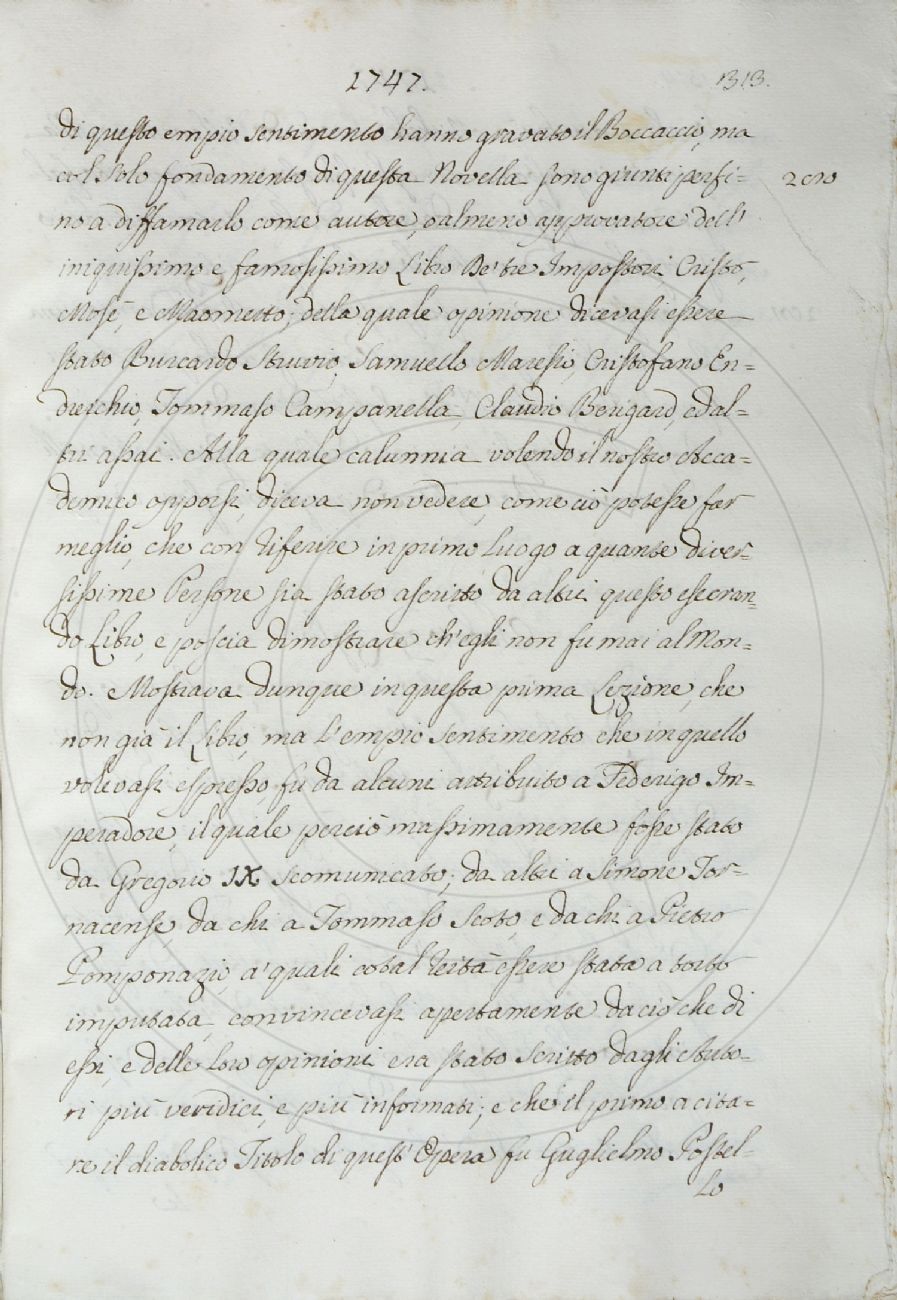 1747.
1313.
di questo empio sentimento hanno gravato il Boccaccio, ma
col solo fondamento di questa Novella sono giunti perfi=
no a diffamarlo come autore, o almeno approvatore dell'
iniquissimo e famosissimo Libro De' tre Impostori, Cristo,
Mosè, e Maometto; della quale opinione dicevasi essere
stato Burcardo Struvio, Samuello Maresio, Cristofano En=
drichio, Tommaso Campanella, Claudio Berigard, ed al=
tri assai. Alla quale calunnia volendo il nostro Acca=
demico opporsi, diceva non vedere, come ciò potesse far
meglio, che con riferire in primo luogo a quante diver=
sissime Persone sia stato ascritto da altri questo esecran=
do Libro, e poscia dimostrare ch'egli non fu mai al Mon=
do. Mostrava dunque in questa prima Lezione, che
non già il Libro, ma l'empio sentimento che in quello
volevasi espresso, fu da alcuni attribuito a Federigo Im=
peradore, il quale perciò massimamente fosse stato
da Gregorio IX scomunicato; da altri a Simone Tor=
nacense, da chi a Tommaso Scoto, e da chi a Pietro
Pomponazio, a' quali cotal reità essere stata a torto
imputata, convincevasi apertamente da ciò che di
essi, e delle loro opinioni era stato scritto dagli Auto=
ri più veridici, e più informati; e che il primo a cita=
re il diabolico Titolo di quest'Opera fu Guglielmo Postel=
lo